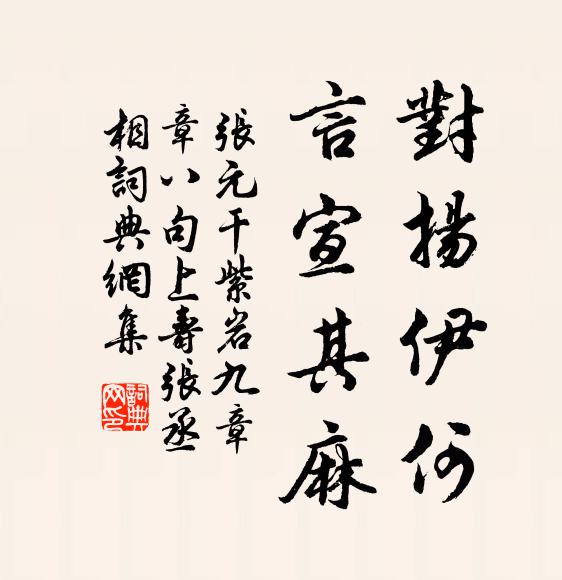 對揚伊何
言宣其麻
張元干紫岩九章
章八句上壽張丞
相詞典網集
詞典网印